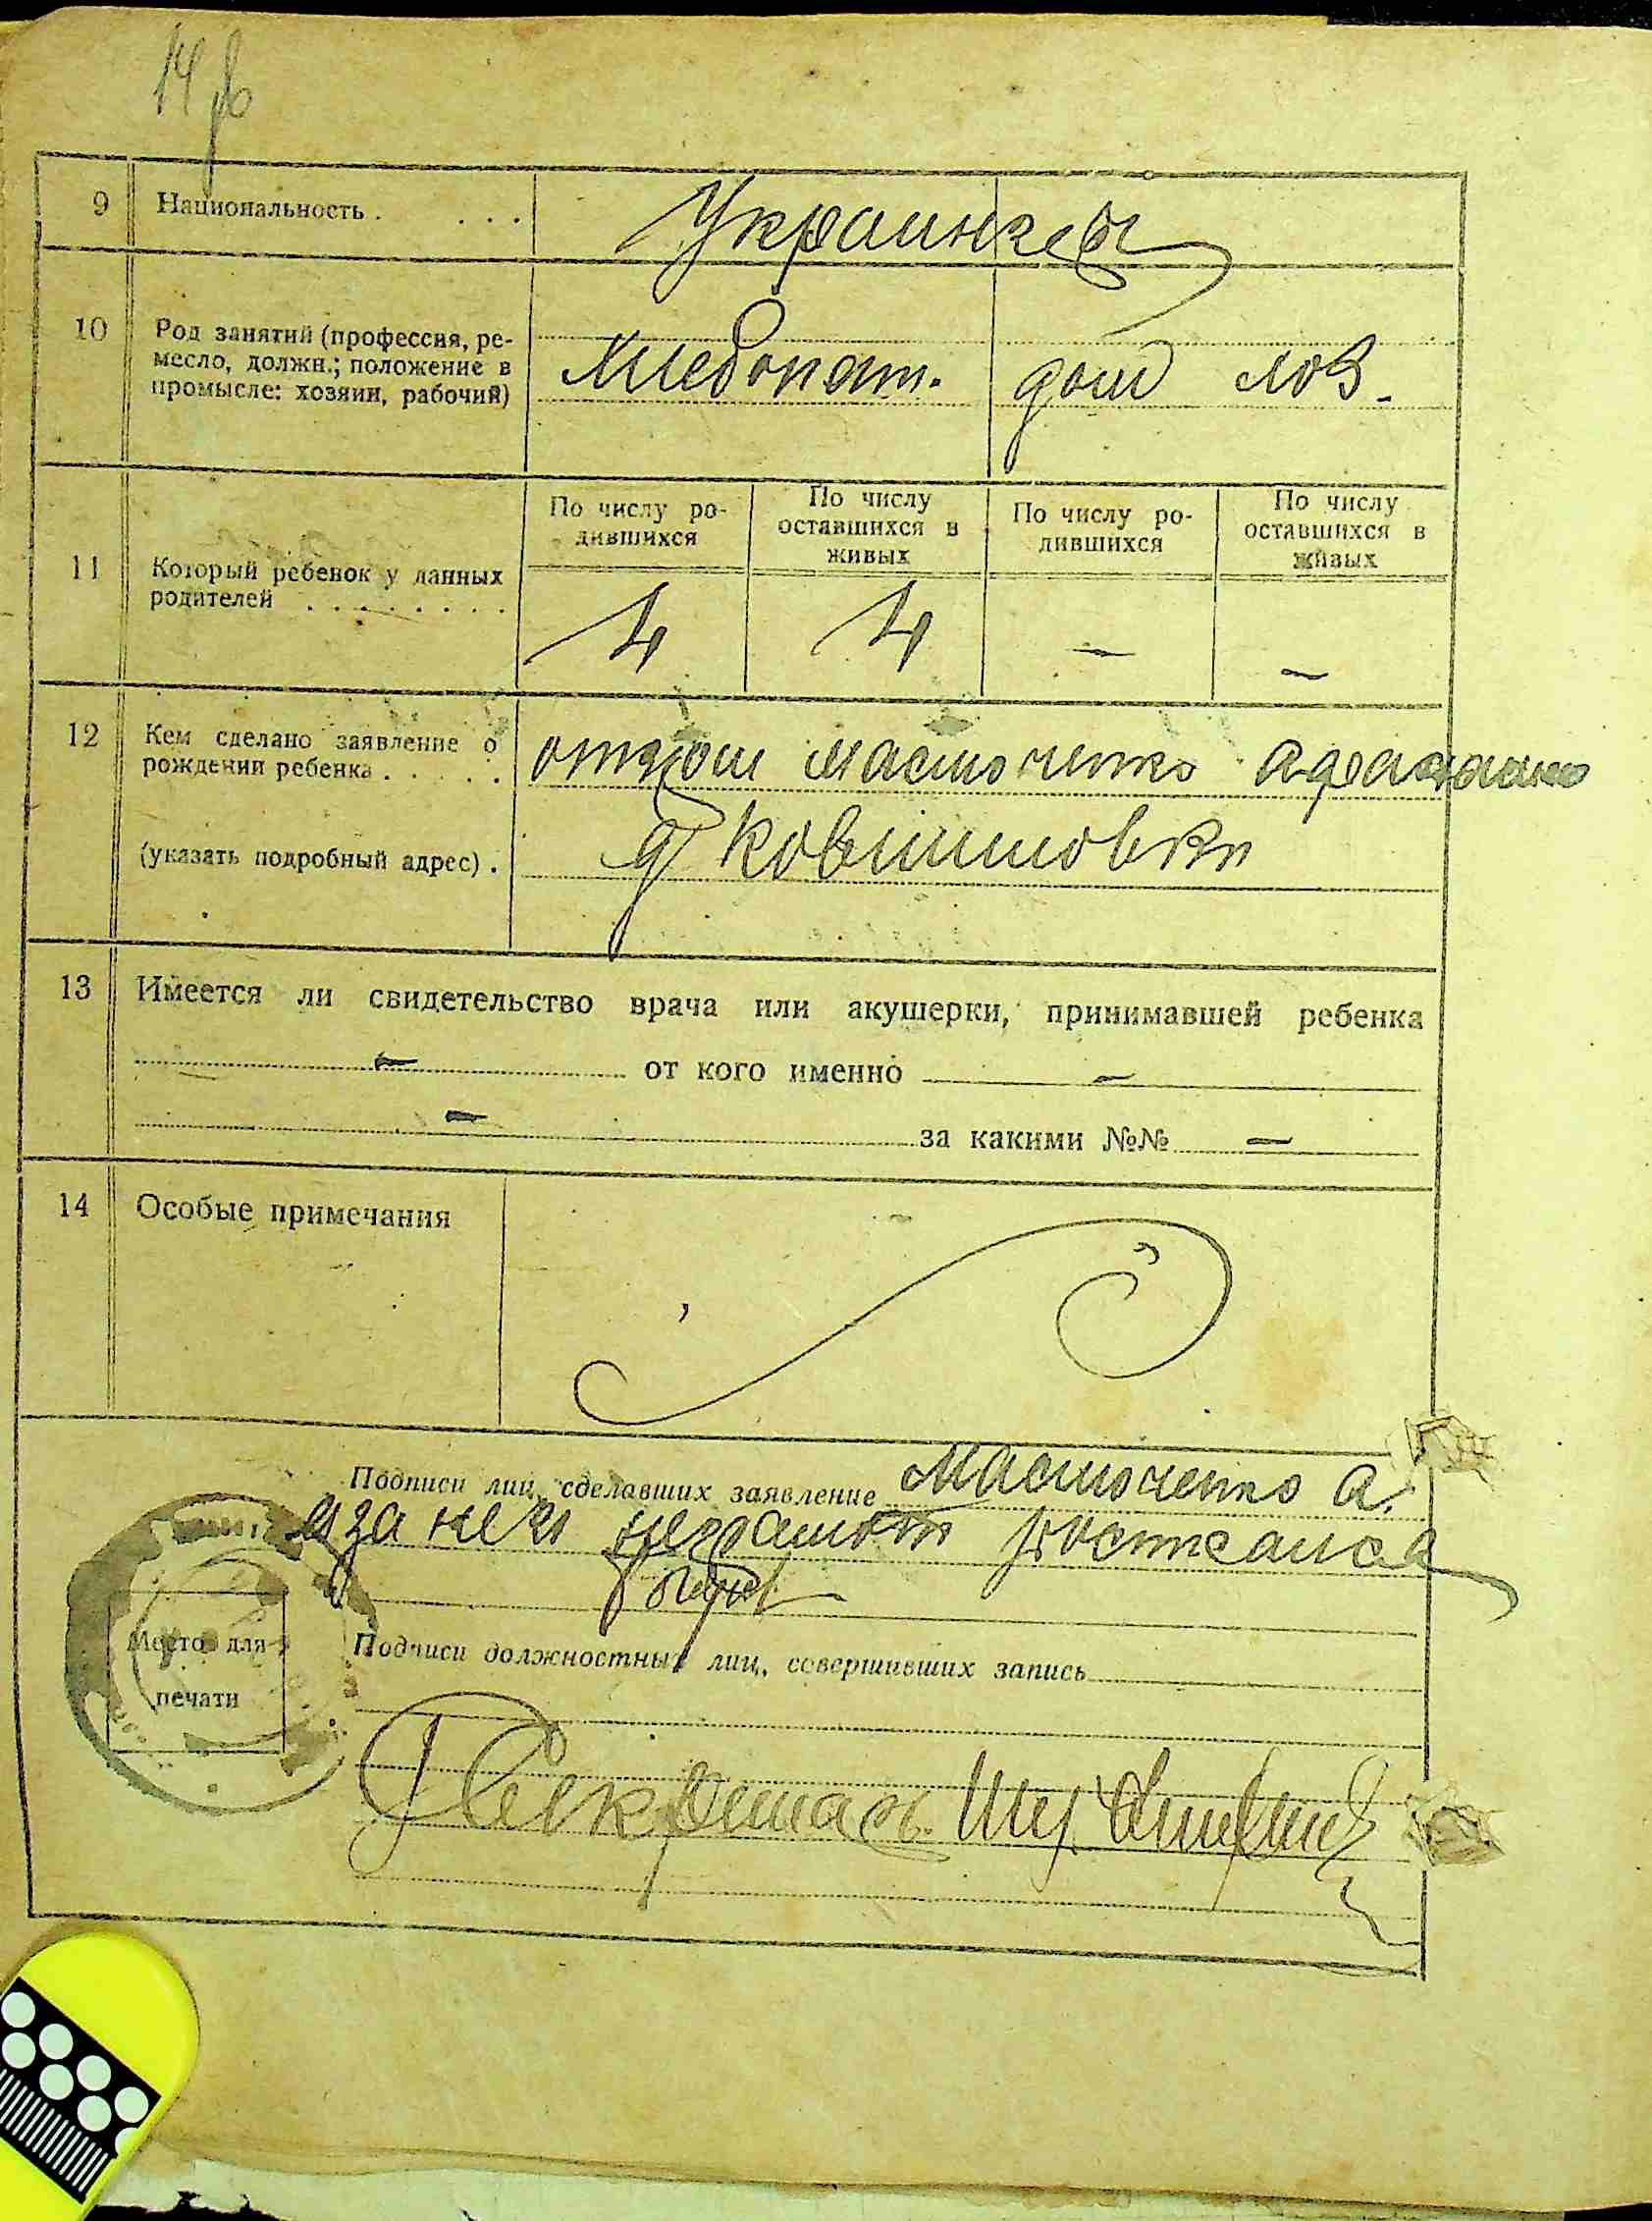 9 Национальность . . . . Украинцы
10 Род занятий (профессия, ре-
месло, должн.; положение в
промысле: хозяин, рабочий)
хлебопаш. дом хоз.
По числу ро-
дившихся
По числу
оставшихся в
живых
По числу ро-
дившихся
По числу
оставшихся в
живых
11 Который ребенок у данных
родителей . . . . . . . .
4 4 – –
12 Кем сделано заявление о
рождении ребенка . . . . .
отцом
(указать подробный адрес) .
д
13 Имеется ли свидетельство врача или акушерки, принимавшей ребенка
– от кого именно –
– за какими №№ –
14 Особые примечания
Подписи лиц, сделавших заявление А.
а за него неграмот
Подписи должностных лиц, совершивших запись
Место для
печати
Секретарь